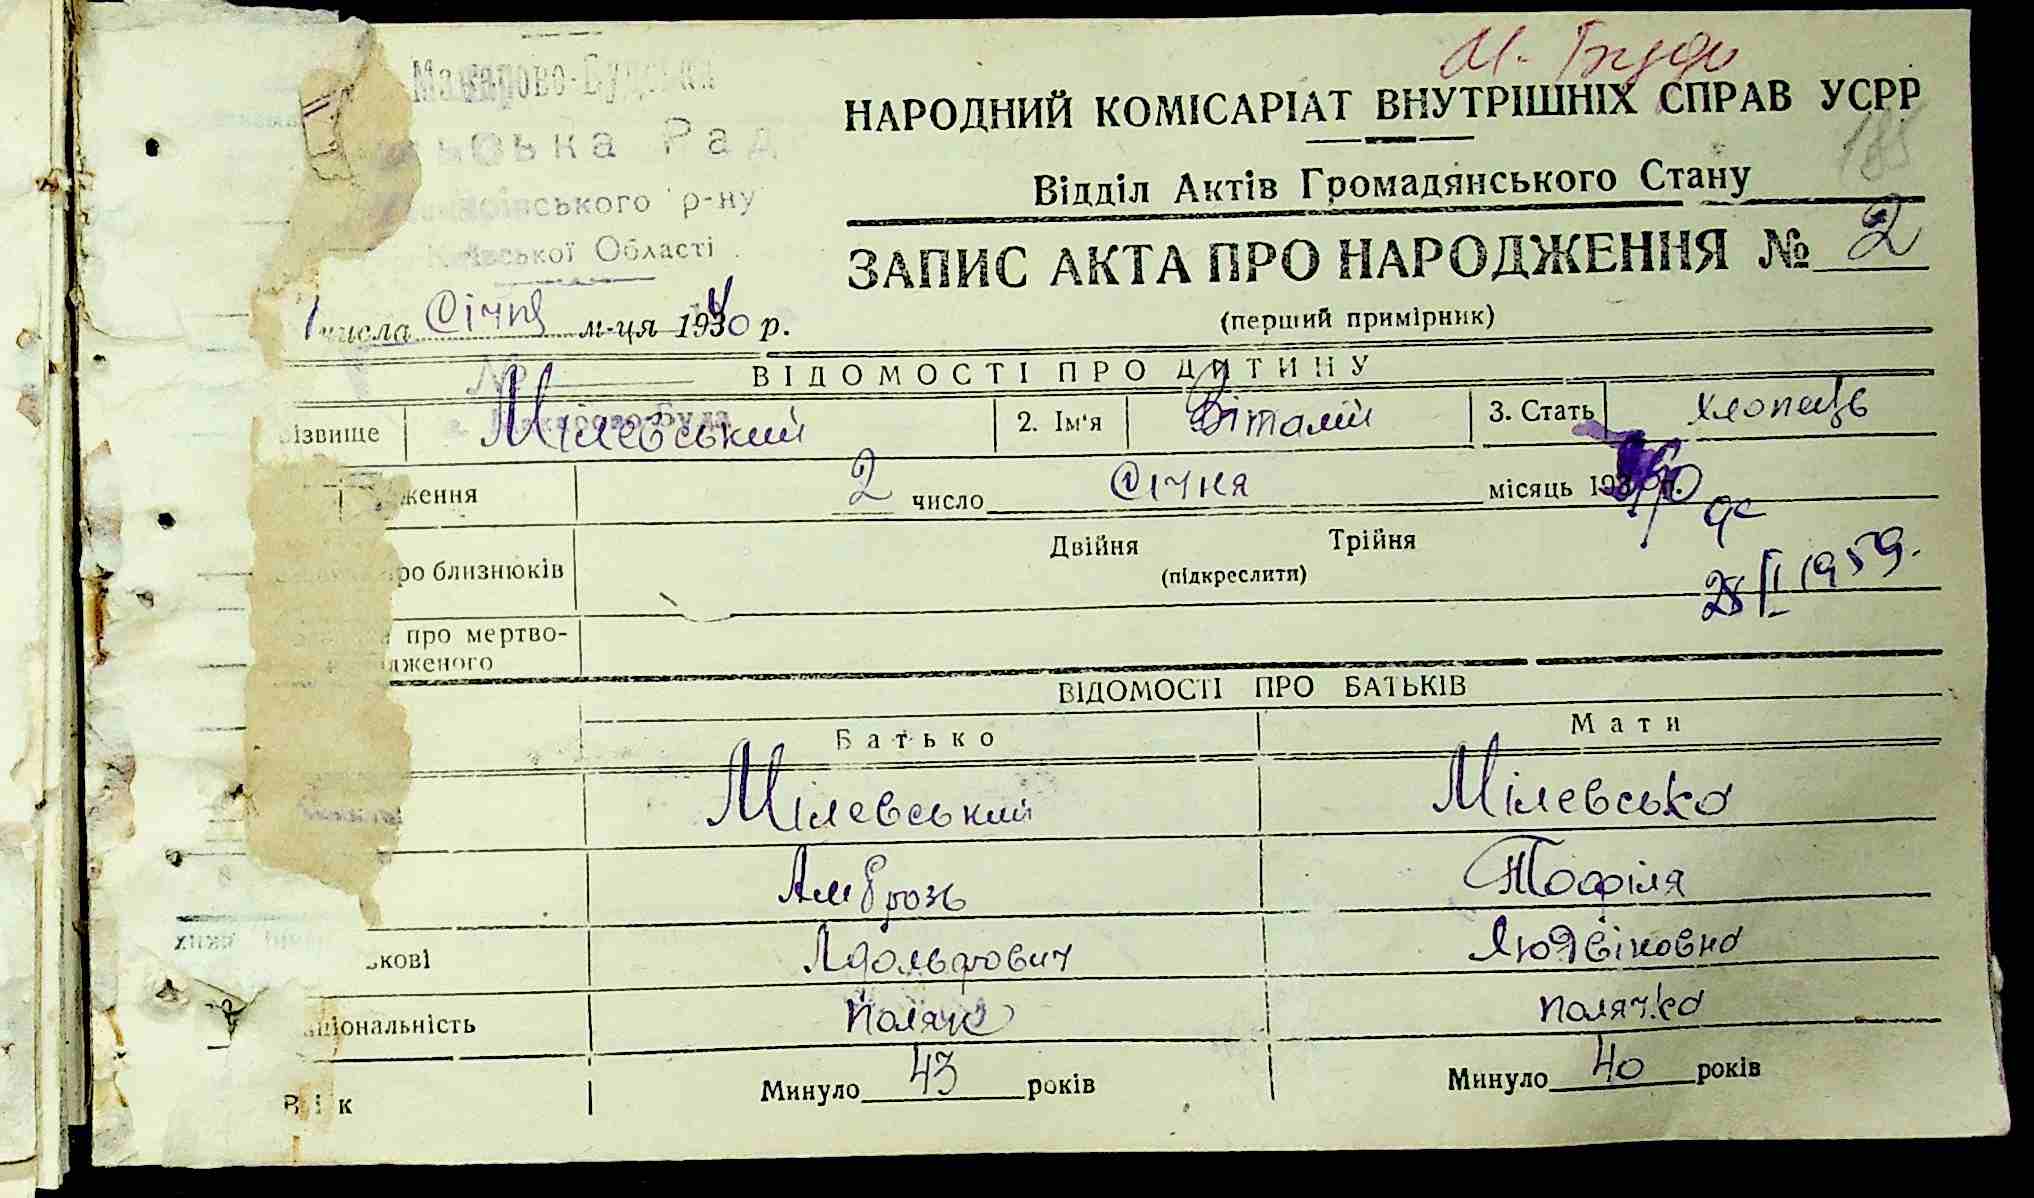 М. Буда
Макарово-Будська
ська Рад
р-ну
Київської Області
НАРОДНИЙ КОМІСАРІАТ ВНУТРІШНІХ СПРАВ УСРР
185
Відділ Актів Громадянського Стану
ЗАПИС АКТА ПРО НАРОДЖЕННЯ № 2
(перший примірник)
числа Січня м-ця 1940 р.
№
с. Макарово-Буда
ВІДОМОСТІ ПРО ДИТИНУ
ізвище Мілевський 2. Ім'я Віталій 3. Стать хлопець
ження 2 число Січня місяць 193
Двійня Трійня
ро близнюків (підкреслити)
1959.
про мертво-
дженого
ВІДОМОСТІ ПРО БАТЬКІВ
Батько Мати
Мілевський Мілевська
Амброзь Тофіля
ькові Адольфович Людвіковна
ціональність поляк полячка
Вік Минуло 43 років Минуло 40 років